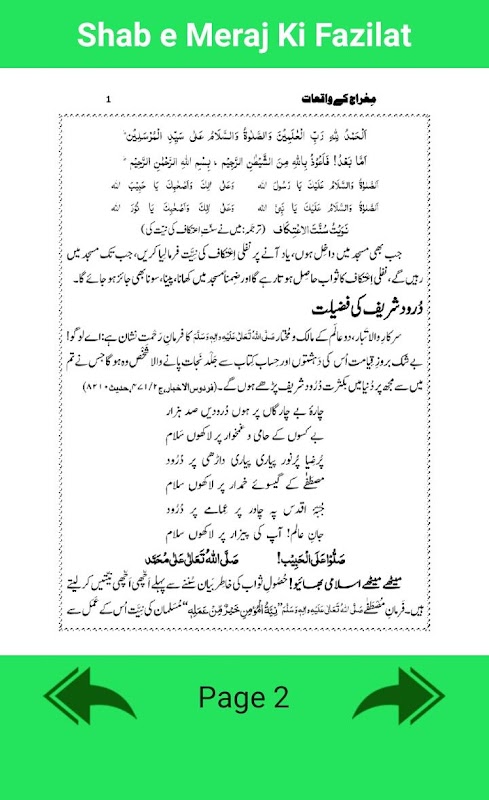 Shab e Meraj Ki Fazilat
معراج کے واقعات 1
اَلْحَمْدُ لِلّٰهِ رَبِّ الْعٰلَمِیْنَ وَالصَّلٰوةُ وَالسَّلَامُ عَلٰی سَیِّدِ الْمُرْسَلِیْنَ ؕ
اَمَّا بَعْدُ! فَاَعُوْذُ بِاللّٰهِ مِنَ الشَّیْطٰنِ الرَّجِیْمِ ، بِسْمِ اللّٰهِ الرَّحْمٰنِ الرَّحِیْمِ ؕ
اَلصَّلٰوةُ وَالسَّلَامُ عَلَیْكَ یَا رَسُوْلَ اللّٰه وَعَلٰی اٰلِكَ وَاَصْحٰبِكَ یَا حَبِیْبَ اللّٰه
اَلصَّلٰوةُ وَالسَّلَامُ عَلَیْكَ یَا نَبِیَّ اللّٰه وَعَلٰی اٰلِكَ وَاَصْحٰبِكَ یَا نُوْرَ اللّٰه
نَوَیْتُ سُنَّتَ الْاِعْتِكَاف (ترجمہ: میں نے سنّتِ اعتکاف کی نیّت کی)
جب بھی مسجد میں داخل ہوں، یاد آنے پر نفلی اِعتکاف کی نِیَّت فرمالیا کریں، جب تک مسجد میں
رہیں گے، نفلی اِعتکاف کا ثواب حاصل ہوتا رہے گا اور ضِمناً مسجد میں کھانا، پینا، سونا بھی جائز ہو جائے گا۔
دُرُود شریف کی فضیلت
سرکارِ والا تَبار، دو عالَم کے مالک و مُختار صَلَّی اللّٰهُ تَعَالٰی عَلَیْهِ وَاٰلِهٖ وَسَلَّمَ کا فرمانِ رَحمت نشان ہے: اے لوگو!
بے شک بروزِ قِیامت اُس کی دَہشتوں اور حساب کتاب سے جلد نَجات پانے والا شخص وہ ہوگا جس نے تم
میں سے مجھ پر دُنیا میں بکثرت دُرُود شریف پڑھے ہوں گے۔ (فردوس الاخبار، ج۲/۴۷۱، حدیث ۸۲۱۰)
چارۂ بے چارگاں پر ہوں دُرودیں صد ہزار
بے کسوں کے حامی و غمخوار پر لاکھوں سلام
پُرضِیا پُرنور پیاری پیاری داڑھی پر دُرُود
مصطفٰے کے گیسوئے خمدار پر لاکھوں سلام
جُبّۂ اقدس پہ چادر پر عمامے پر دُرُود
جانِ عالَم! آپ کی پیزار پر لاکھوں سلام
صَلُّوْا عَلَی الْحَبِیْب! صَلَّی اللّٰهُ تَعَالٰی عَلٰی مُحَمَّد
میٹھے میٹھے اسلامی بھائیو! حُصُولِ ثواب کی خاطر بَیان سُننے سے پہلے اَچّھی اَچّھی نیّتیں کر لیتے
ہیں۔ فرمانِ مُصْطَفٰے صَلَّی اللّٰهُ تَعَالٰی عَلَیْهِ وَاٰلِهٖ وَسَلَّمَ "نِیَّةُ الْمُؤْمِنِ خَیْرٌ مِّنْ عَمَلِهٖ" مُسَلمان کی نِیَّت اُس کے عَمَل سے
Page 2